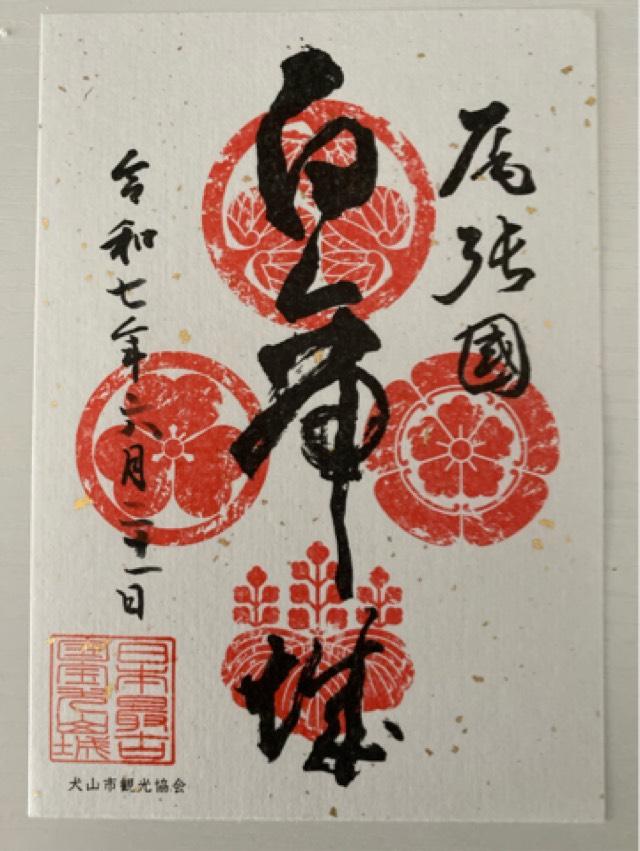 尾張國
白帝城
令和七年六月二十一日
日本最古
国宝犬山城
犬山市観光協会